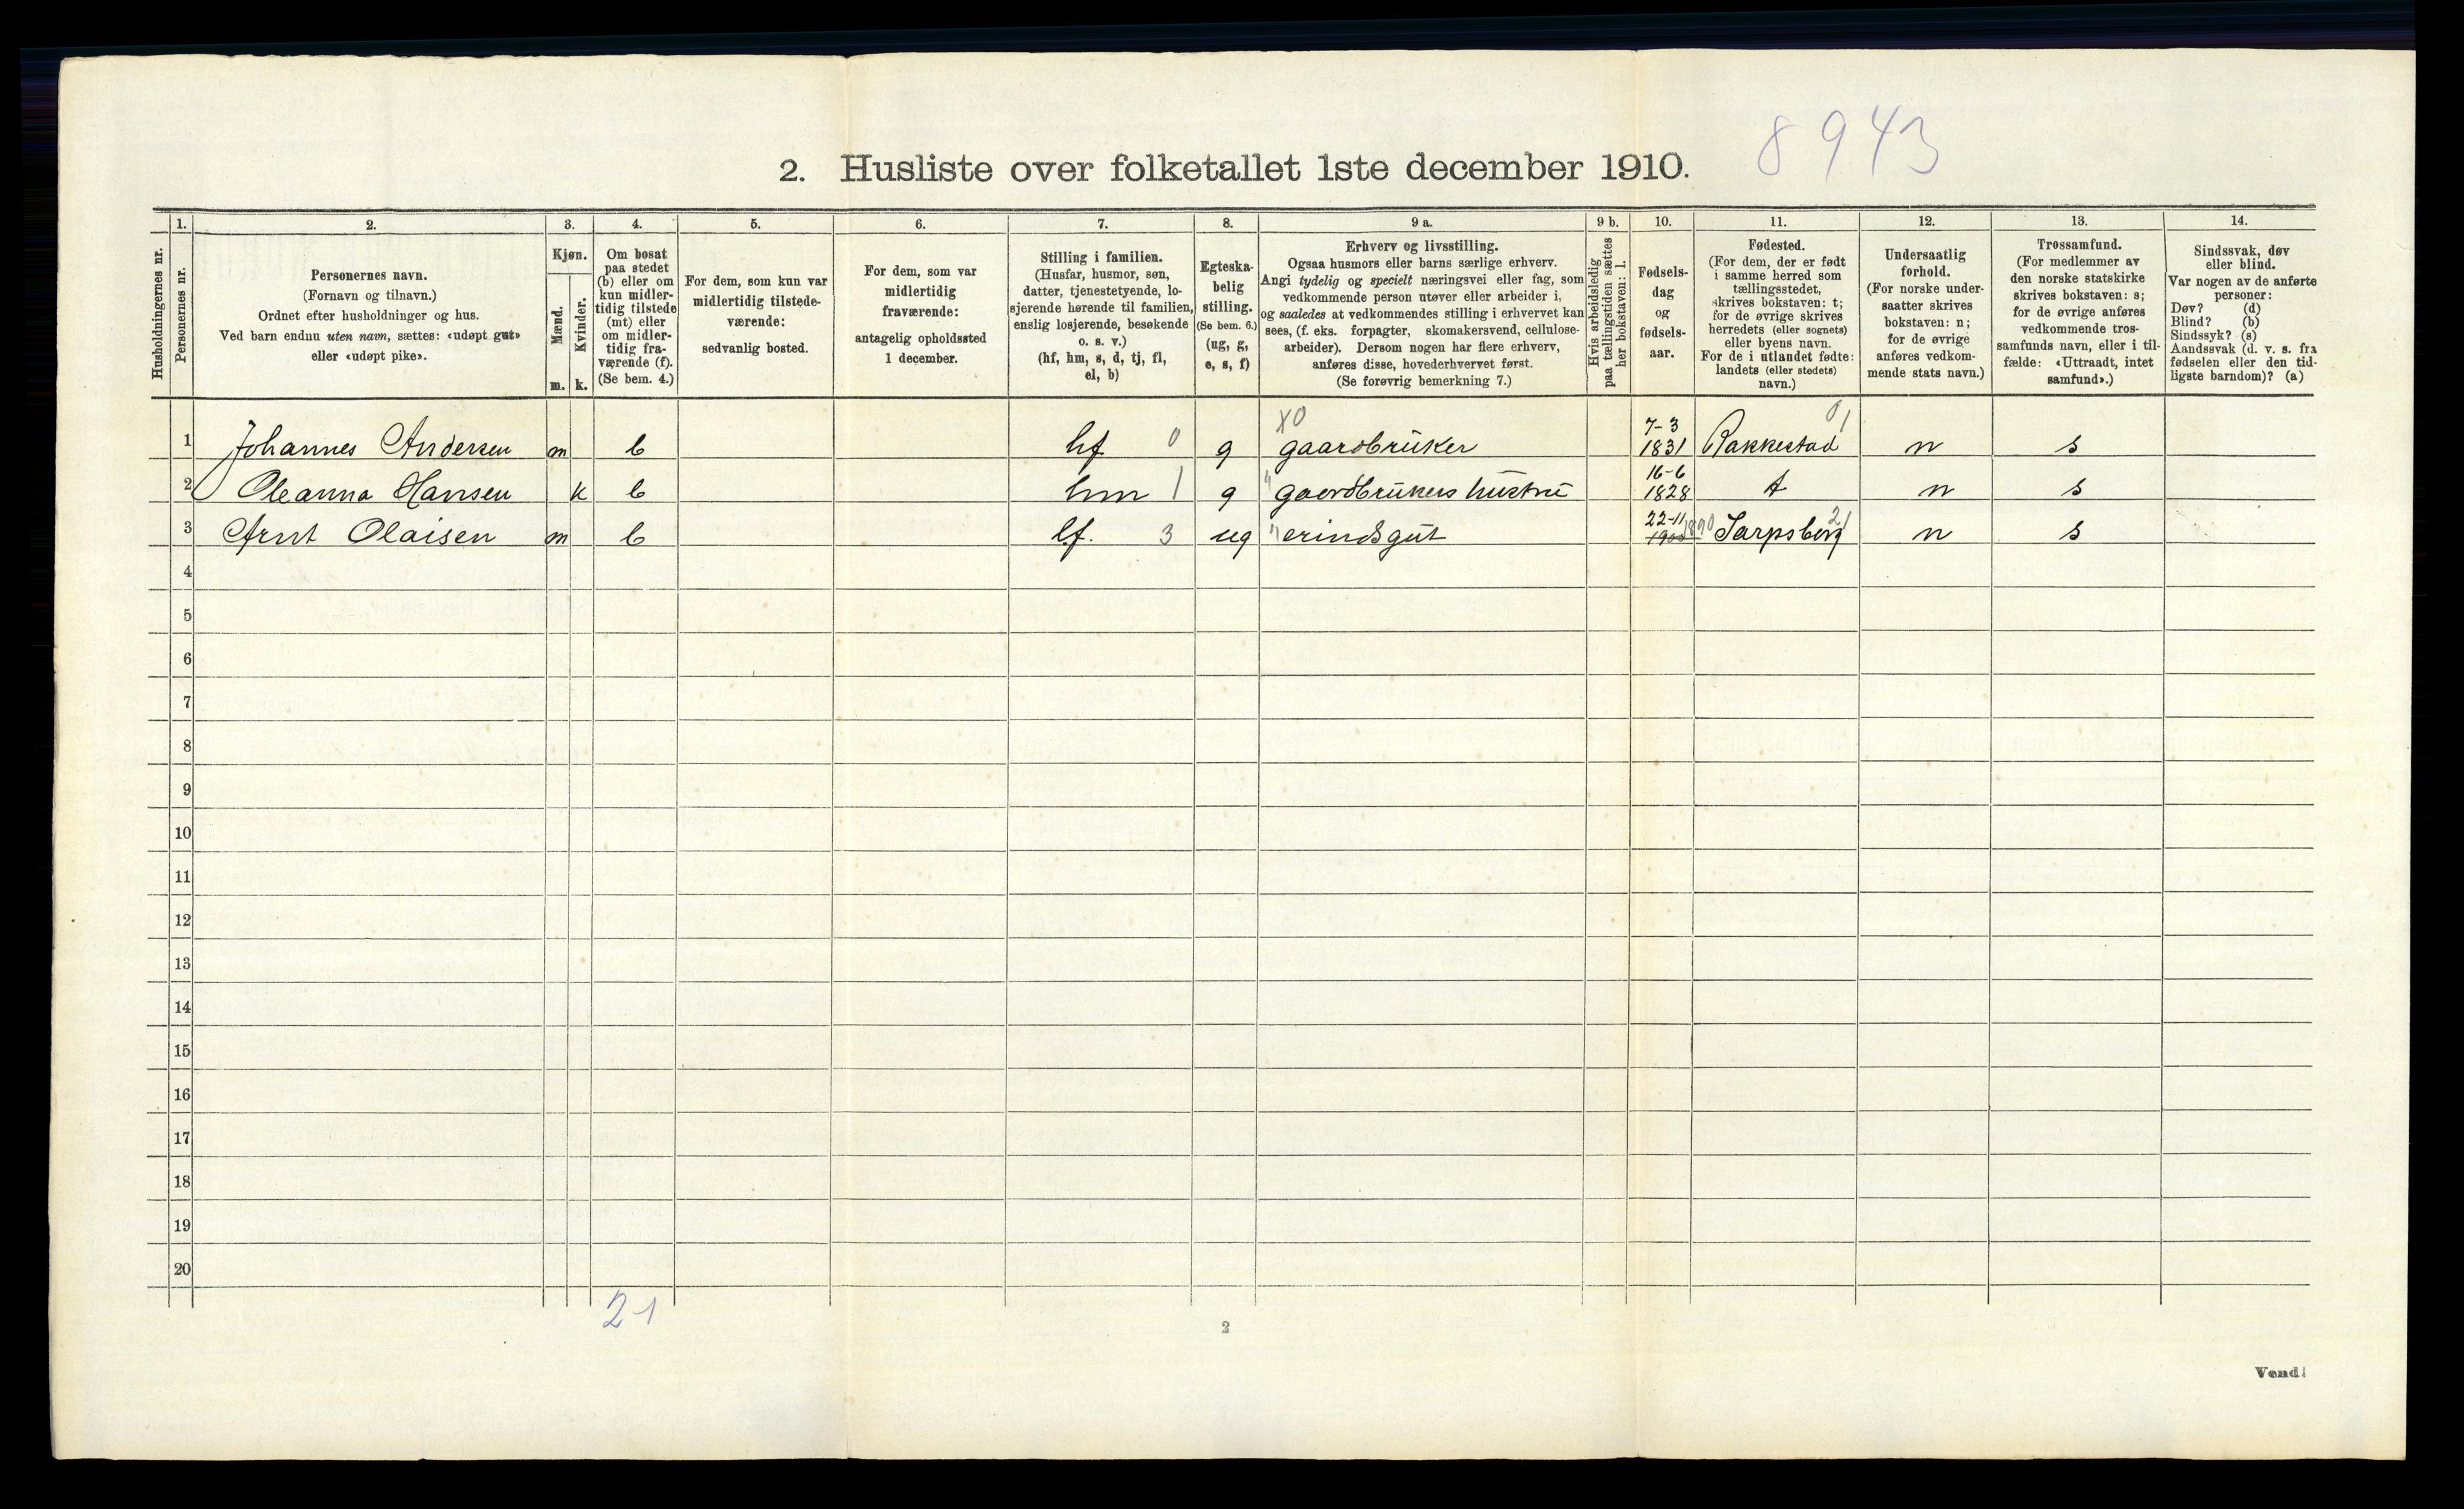 8943
2. Husliste over folketallet 1ste december 1910.
Husholdningernes nr.
1.
Personernes nr.
2.
Personernes navn.
(Fornavn og tilnavn.)
Ordnet efter husholdninger og hus.
Ved barn endnu uten navn, sættes: «udøpt gut»
eller «udøpt pike».
3.
Kjøn.
Mænd.
m.
Kvinder.
k.
4.
Om bosat
paa stedet
(b) eller om
kun midler-
tidig tilstede
(mt) eller
om midler-
tidig fra-
værende (f).
(Se bem. 4.)
5.
For dem, som kun var
midlertidig tilstede-
værende:
sedvanlig bosted.
6.
For dem, som var
midlertidig
fraværende:
antagelig opholdssted
1 december.
7.
Stilling i familien.
(Husfar, husmor, søn,
datter, tjenestetyende, lo-
sjerende hørende til familien,
enslig losjerende, besøkende
o. s. v.)
(hf, hm, s, d, tj, fl,
el, b)
8.
Egteska-
belig
stilling.
(Se bem. 6.)
(ug, g,
e, s, f)
9 a.
Erhverv og livsstilling.
Ogsaa husmors eller barns særlige erhverv.
Angi tydelig og specielt næringsvei eller fag, som
vedkommende person utøver eller arbeider i,
og saaledes at vedkommendes stilling i erhvervet kan
sees, (f. eks. forpagter, skomakersvend, cellulose-
arbeider). Dersom nogen har flere erhverv,
anføres disse, hovederhvervet først.
(Se forøvrig bemerkning 7.)
9 b.
Hvis arbeidsledig
paa tællingstiden sættes
her bokstaven: l.
10.
Fødsels-
dag
og
fødsels-
aar.
11.
Fødested.
(For dem, der er født
i samme herred som
tællingsstedet,
skrives bokstaven: t;
for de øvrige skrives
herredets (eller sognets)
eller byens navn.
For de i utlandet fødte:
landets (eller stedets)
navn.)
12.
Undersaatlig
forhold.
(For norske under-
saatter skrives
bokstaven: n;
for de øvrige
anføres vedkom-
mende stats navn.)
13.
Trossamfund.
(For medlemmer av
den norske statskirke
skrives bokstaven: s;
for de øvrige anføres
vedkommende tros-
samfunds navn, eller i til-
fælde: «Uttraadt, intet
samfund».)
14.
Sindssvak, døv
eller blind.
Var nogen av de anførte
personer:
Døv? (d)
Blind? (b)
Sindssyk? (s)
Aandssvak (d. v. s. fra
fødselen eller den tid-
ligste barndom)? (a)
1 Johannes Andersen m b hf 0 g X0 gaardbruker 7-3 1831 Rakkestad 01 n s
2 Oleanna Hansen k b hm 1 g " gaardbrukers hustru 16-6 1828 t n s
3 Arnt Olaisen m b lf. 3 ug " erindsgut 22-11 1900 1890 Sarpsborg 21 n s
4
5
6
7
8
9
10
11
12
13
14
15
16
17
18
19
20
2-1
2
Vend!